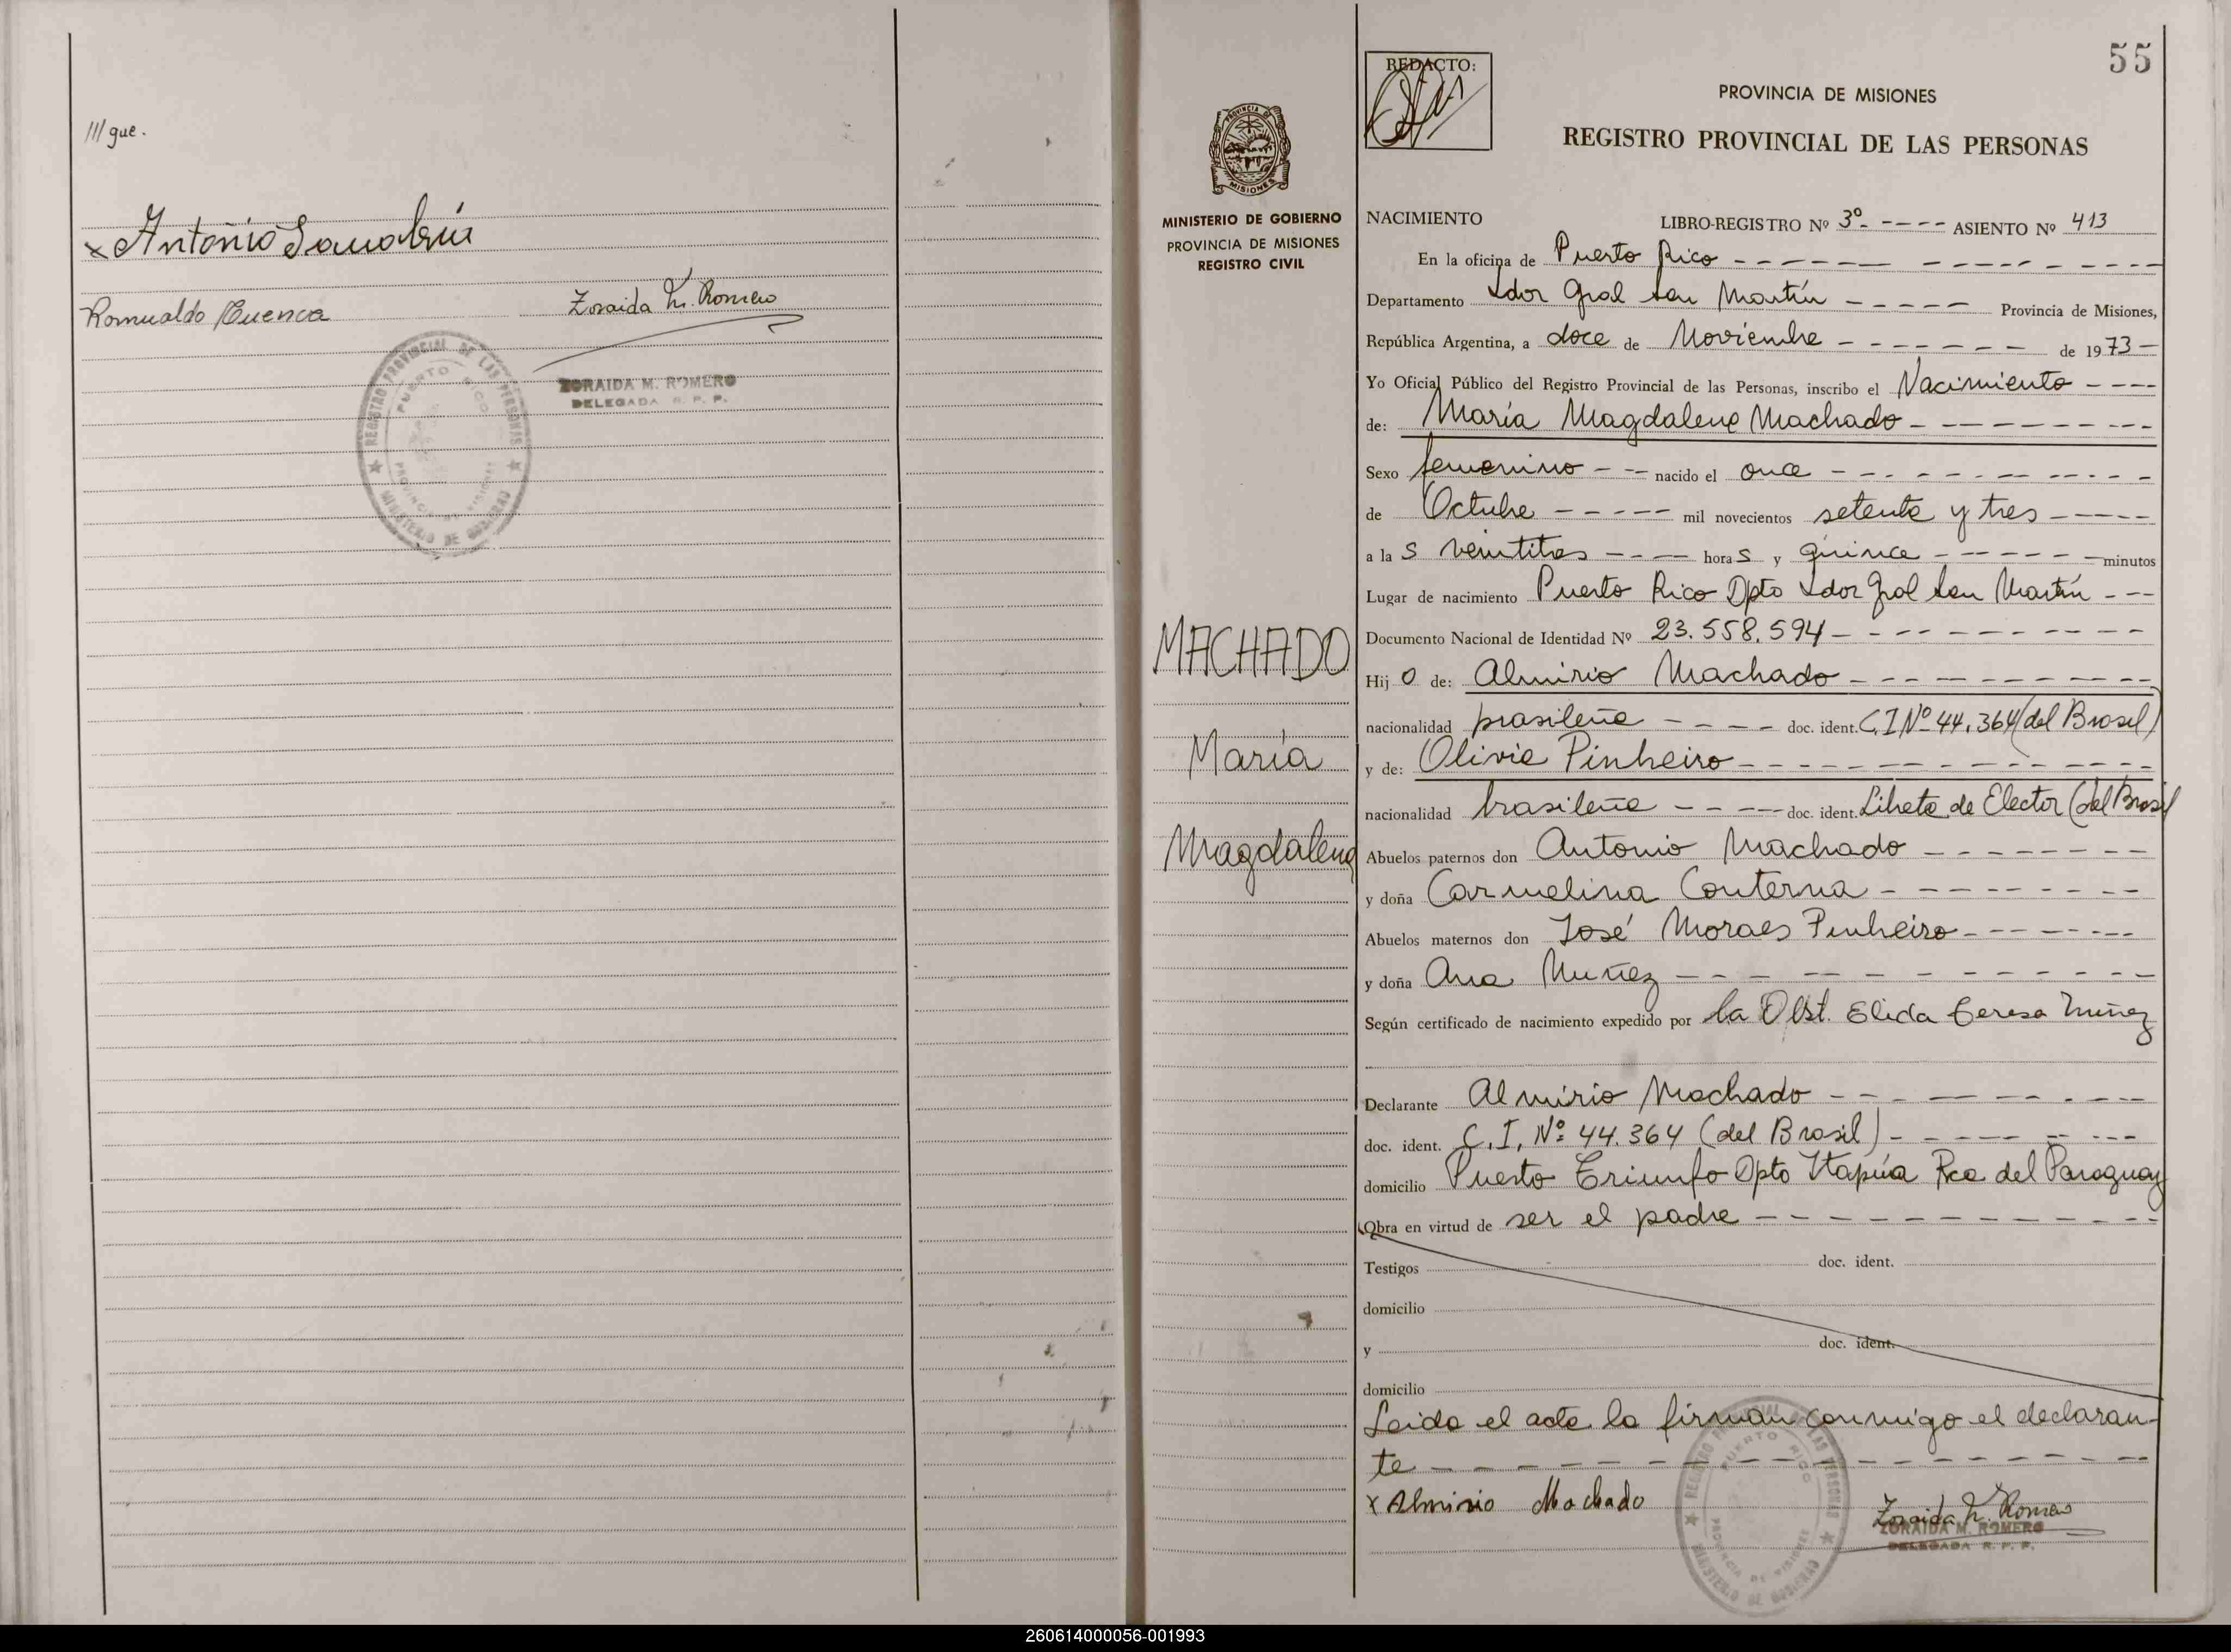 ///gue.
x Antonio
Romualdo Cuenca Zoraida M. Romero
REGISTRO PROVINCIAL DE LAS PERSONAS
PUERTO RICO
PROVINCIA DE MISIONES
MINISTERIO DE GOBIERNO
ZORAIDA M. ROMERO
DELEGADA R. P. P.
PROVINCIA DE MISIONES
MINISTERIO DE GOBIERNO
PROVINCIA DE MISIONES
REGISTRO CIVIL
MACHADO
María
Magdalena
55
REDACTO:
PROVINCIA DE MISIONES
REGISTRO PROVINCIAL DE LAS PERSONAS
NACIMIENTO LIBRO-REGISTRO Nº 3º - ---- ASIENTO Nº 413
En la oficina de Puerto Rico
Departamento Ldor Gral San Martín Provincia de Misiones,
República Argentina, a doce de Noviembre de 1973
Yo Oficial Público del Registro Provincial de las Personas, inscribo el Nacimiento
de: María Magdalena Machado
Sexo femenino nacido el once
de Octubre mil novecientos setenta y tres
a la s veintitres hora s y quince minutos
Lugar de nacimiento Puerto Rico Dpto Ldor Gral San Martín
Documento Nacional de Identidad Nº 23.558.594
Hij o de: Almirio Machado
nacionalidad brasileña doc. ident. C.I Nº 44.364 (del Brasil)
y de: Olivia Pinheiro
nacionalidad brasileña doc. ident. Libreta de Elector (del Brasil
Abuelos paternos don Antonio Machado
y doña Carmelina Conterna
Abuelos maternos don José Moraes Pinheiro
y doña Ana Nuñez
Según certificado de nacimiento expedido por la Obst. Elida Teresa Nuñez
Declarante Almirio Machado
doc. ident. C.I. Nº 44.364 (del Brasil)
domicilio Puerto Triunfo Dpto Itapúa Rca del Paraguay
Obra en virtud de ser el padre
Testigos doc. ident.
domicilio
y doc. ident.
domicilio
Leida el acta la firman conmigo el declaran-
te
x Almirio Machado Zoraida M. Romero
REGISTRO PROVINCIAL DE LAS PERSONAS
PUERTO RICO
PROVINCIA DE MISIONES
MINISTERIO DE GOBIERNO
ZORAIDA M. ROMERO
DELEGADA R. P. P.
260614000056-001993